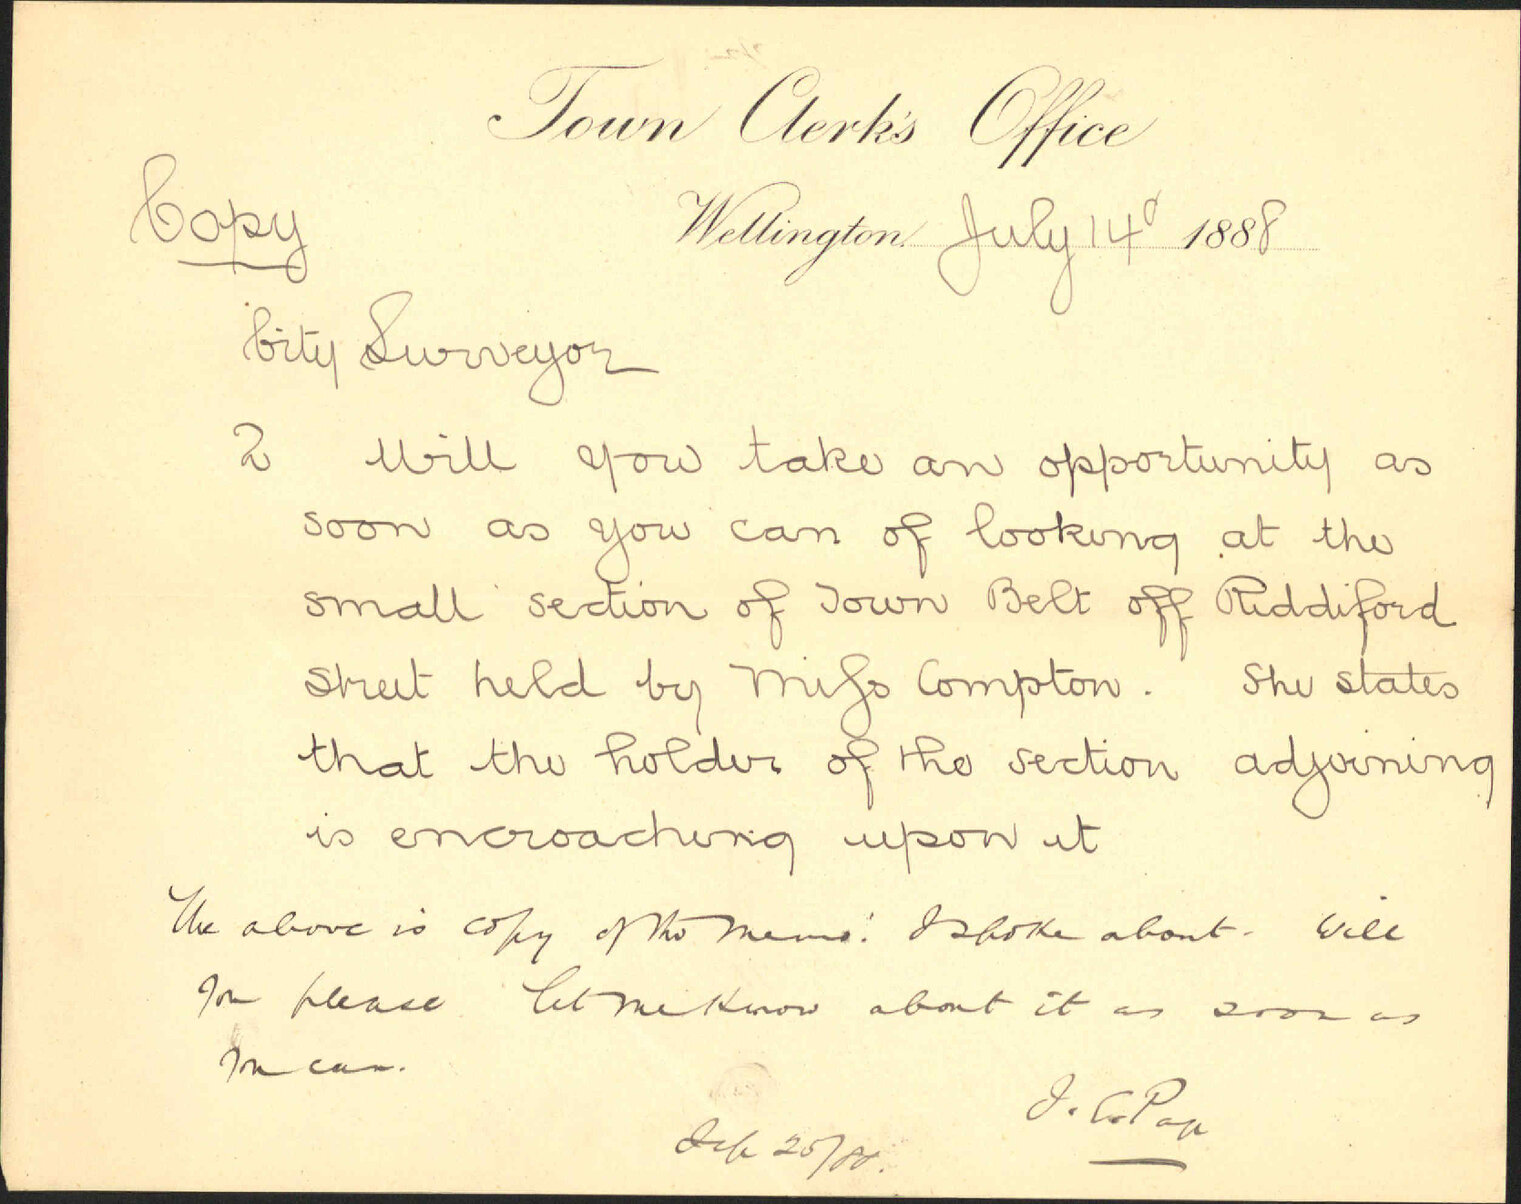 Town Clerk's Office
Copy
Wellington July 14 1888
City Surveyor
2 Will you take an opportunity as
soon as you can of looking at the
small section of Town Belt off Riddiford
Street held by Miss Compton. She states
that the holder of the section adjoining
is encroaching upon it
The above is copy of the memo: I spoke about. Will
you please let me know about it as soon as
you can.
J. C. Page
Sep 25/88.